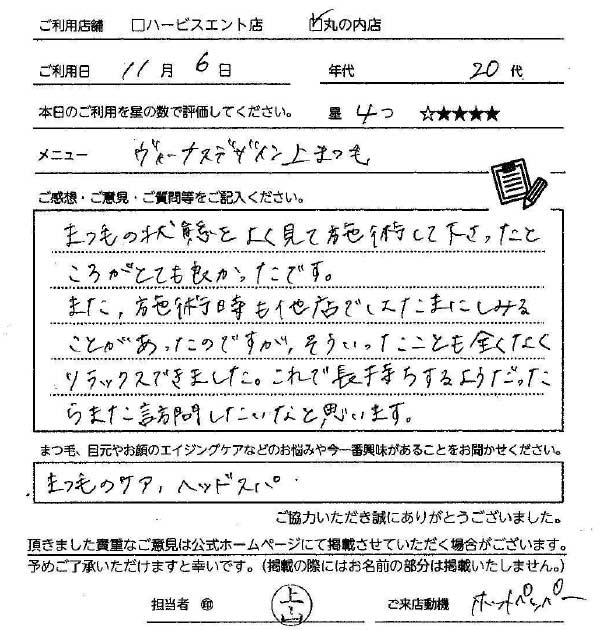 ご利用店舗 □ハービスエント店 ☑丸の内店
ご利用日 11月 6日 年代 20代
本日のご利用を星の数で評価してください。 星 4つ ☆★★★★
メニュー ヴィーナスデザイン上まつ毛
ご感想・ご意見・ご質問等をご記入ください。
まつ毛の状態をよく見て施術して下さったと
ころがとても良かったです。
また、施術時も他店でしたたまにしみる
ことがあったのですが、そういったことも全くなく
リラックスできました。これで長持ちするようだった
らまた訪問したいなと思います。
まつ毛、目元やお顔のエイジングケアなどのお悩みや今一番興味があることをお聞かせください。
まつ毛のケア、ヘッドスパ
ご協力いただき誠にありがとうございました。
頂きました貴重なご意見は公式ホームページにて掲載させていただく場合がございます。
予めご了承いただけますと幸いです。（掲載の際にはお名前の部分は掲載いたしません。）
担当者 ㊞ 上山 ご来店動機 ホットペッパー